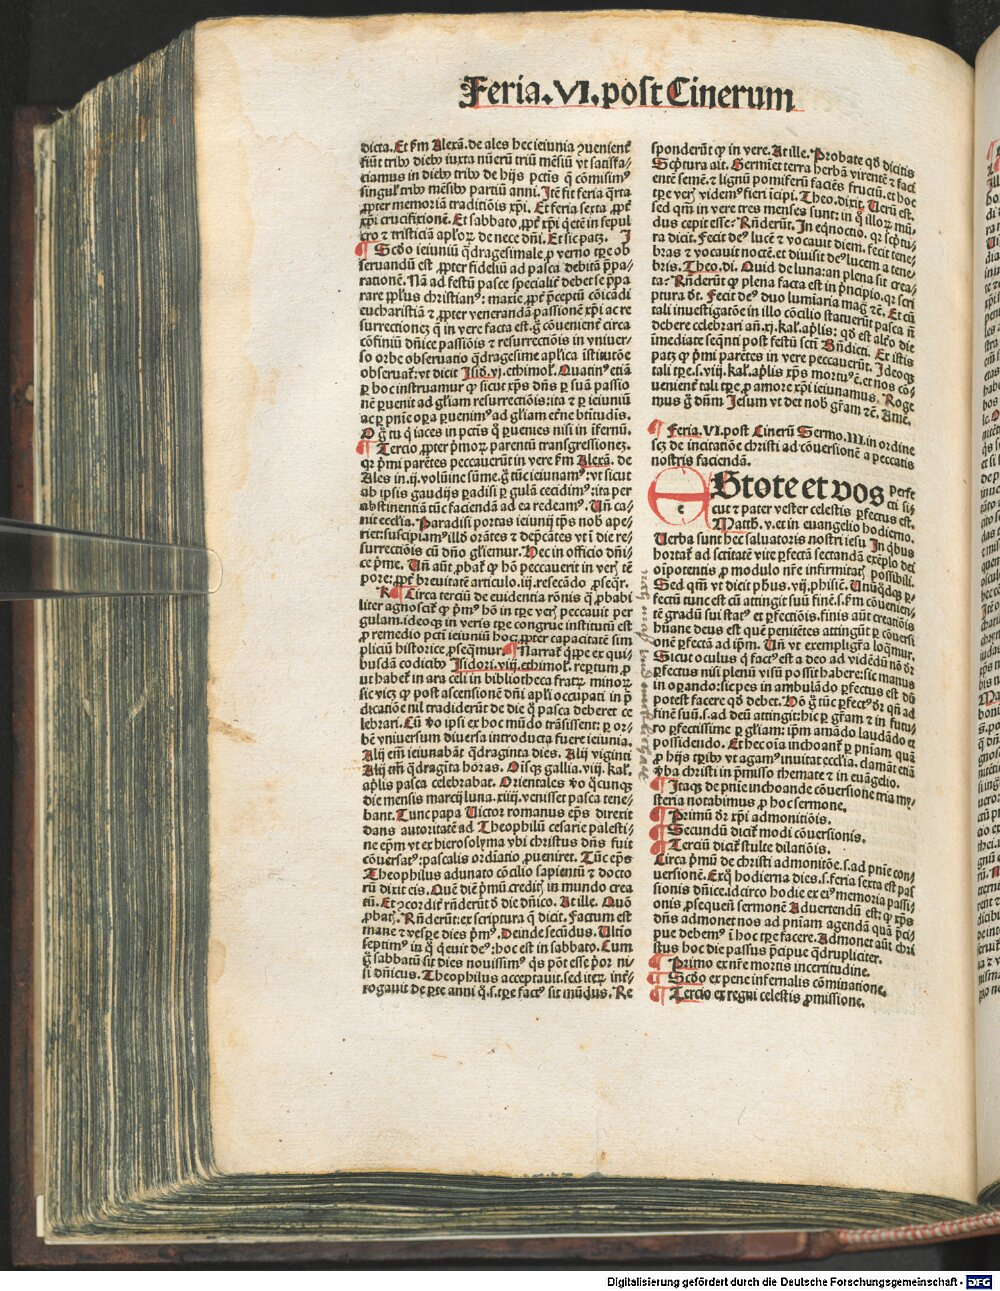 Feria.VI.post Cinerum
dicta. Et ẜm Alexã. de ales hec ieiunia ꝯuenient̃
fiũt tribꝰ diebꝰ iuxta nũerũ triũ mẽsiũ vt satisfa-
ciamus in diebꝰ tribꝰ de hijs pctis q̃ cõmisimꝰ
singul̃ tribꝰ mẽsibꝰ partiũ anni. Itẽ fit feria q̃rta
ꝓpter memoriã traditiõis xp̃i. Et feria sexta ꝓpt̃
xp̃i crucifixionẽ. Et sabbato ꝓpt̃ xp̃i q̃etẽ in sepul
cro ⁊ tristiciã apl̃oꝝ de nece dñi. Et sic patꝫ.
Scďo ieiuniũ q̃dragesimale ꝓ verno tꝑe ob
seruandũ est ꝓpter fideliũ ad pasca debitã p̃pa-
rationẽ. Nã ad festũ pasce specialit̃ debet se p̃pa
rare ppl̃us christianꝰ: maxie ꝓpt̃ p̃ceptũ cõicãdi
eucharistiã ⁊ ꝓpter venerandã passionẽ xp̃i ac re
surrectionẽ q̃ in vere facta est. g̃ cõuenient̃ circa
cõfiniũ dñice passiõis ⁊ resurrectiõis in vniuer-
so orbe obseruatio q̃dragesime apl̃ica ĩstitutiõe
obseruat̃: vt dicit Isid̃. vj. ethimol̃. Quatinꝰ etiã
ꝑ hoc instruamur ꝙ sicut xp̃s dñs ꝑ suã passio
nẽ ꝑuenit ad gl̃iam resurrectiõis: ita ⁊ ꝑ ieiuniũ
ac ꝑ pn̄ie oꝑa ꝑuenimꝰ ad gl̃iam et̃ne btĩtudis.
O g̃ tu q̃ iaces in pctis q̃ ꝑuenies nisi in ĩfernũ.
Tercio ꝓpter p̃moꝝ parentũ transgressionẽ.
qꝛ p̃mi parẽtes peccauerũt in vere ẜm Alexã. de
Ales in .ij. volũine sũme. g̃ tũc ieiunamꝰ: vt sicut
ab ipsis gaudijs ꝑadisi ꝑ gulã cecidimꝰ: ita per
abstinentiã tũc faciendã ad ea redeamꝰ. Uñ ca-
nit eccl̃ia. Paradisi portas ieiunij tp̃s nob̃ ape-
riet: suscipiamꝰ illď orãtes ⁊ dep̃cãtes vt ĩ die re-
surrectiõis cũ dño gl̃iemur. Hec in officio dñi-
ce p̃me. Uñ aũt ꝓbat̃ ꝙ hõ peccauerit in verẽ tẽ
pore: ꝓpt̃ breuitatẽ articulo .iij. resecãdo ꝓseqr̃.
Circa terciũ de euidentia rõnis q̃ ꝓbabi
liter agnoscit̃ ꝙ p̃mꝰ hõ in tꝑe verꝫ peccauit per
gulam. ideoqꝫ in veris tꝑe congrue institutũ est
ꝓ remedio pcti ieiuniũ hoc. ꝓpter capacitatẽ sim
pliciũ historice ꝓseqmur. Narrat̃ q̃ppe ex qui
busdã codicibꝰ Isidori. viij. ethimol̃. reꝑtum ꝓ
ut habet̃ in ara celi in bibliotheca fratꝝ minoꝝ
sic vicꝫ ꝙ post ascensionẽ dñi apl̃i occupati in p̃
dicatiõe nil tradiderũt de die q̃ pasca deberet ce
lebrari. Cũ ꝟo ipsi ex hoc mũdo trãsissent: ꝑ or-
bẽ vniuersum diuersa introducta fuere ieiunia.
Alij em̃ ieiunabãt q̃draginta dies. Alij viginti
Alij em̃ q̃dragĩta horas. Oĩsqꝫ gallia. viij. kal̃.
apl̃is pasca celebrabat. Orientales ꝟo q̃cunqꝫ
die mensis marcij luna. xiiij. venisset pasca tene-
bant. Tunc papa Uictor romanus ep̃s direxit
dans autoritatẽ ad Theophilũ cesarie palesti-
ne ep̃m vt ex hierosolyma vbi christus dñs fuit
cõuersatꝰ: pascalis ordĩatio ꝓueniret. Tũc ep̃s
Theophilus adunato cõcilio sapientũ ⁊ docto
rũ dixit eis. Quẽ diẽ p̃mũ creditꝭ in mundo crea
tũ. Et ꝯcordit̃ rñderũt ꝙ die dñico. At ille. Quõ
ꝓbatꝭ. Rñderũt: ex scriptura q̃ dicit. Factum est
mane ⁊ vesꝑe dies p̃mꝰ. Deinde secũdus. Ultio
septimꝰ in q̃ q̃euit deꝰ: hoc est in sabbato. Cum
g̃ sabbatũ sit dies nouissimꝰ q̃s põt esse p̃or ni
si dñicus. Theophilus acceptauit. sed iteꝝ int̃r
rogauit de ꝑte anni q̃. s. tꝑe factꝰ sit mũdus. Re
sponderũt ꝙ in vere. At ille. Probate qď dicitis
Scp̃tura ait. Germinet terra herbã virentẽ ⁊ faci
entẽ semẽ. ⁊ lignũ pomiferũ faciẽs fructũ. et hoc
tꝑe verꝫ videmꝰ fieri ĩcipi. Theo. dixit. Uerũ est.
sed qm̃ in vere tres menses sunt: in q̃ illoꝝ mũ.
dus cepit esse? Rñderũt. In eqnoctio. qꝛ scp̃tu-
ra dicit. Fecit deꝰ lucẽ ⁊ vocauit diem. fecit tene-
bras ⁊ vocauit noctẽ. et diuisit deꝰ lucem a tene-
bris. Theo. di. Quid de luna: an plena sit crea-
ta? Rñderũt ꝙ plena facta est in p̃ncipio. qꝛ scri
ptura ďt. Fecit deꝰ duo lumiaria mag̃ ⁊c̃. Et cũ
tali inuestigatõe in illo cõcilio statuerũt pasca ñ
debere celebrari añ. xj. kal̃. apl̃is: qď est alr̃o die
ĩmediate seq̃nti post festũ scti Bñdicti. Et istis
patꝫ ꝙ p̃mi parẽtes in vere peccauerũt. Ideoqꝫ
tali tꝑe. s. viij. kal̃. apl̃is xp̃s mortuꝰ ẽ. et nos cõ-
uenient̃ tali tꝑe ꝓ amore xp̃i ieiunamus. Roge
mus g̃ dñm Jesum vt det nob̃ gr̃am ⁊c̃. Amẽ.
Feria. VI. post Cinerũ Sermo. III. in ordine
scꝫ de incitatiõe christi ad cõuersionẽ a peccatis
nostris faciendã.
e
Estote et vos perfe
cti si-
cut ⁊ pater vester celestis ꝑfectus est.
Matth. v. et in euangelio hodierno.
Uerba sunt hec saluatoris nostri iesu In q̃bus
hortat̃ ad sc̃titatẽ vite ꝑfectã sectandã exẽplo dei
oĩpotentis ꝓ modulo nr̃e infirmitatꝭ possibili.
Sed qm̃ vt dicit ph̃us. vij. phisic̃. Unũqďqꝫ ꝑ-
fectũ tunc est cũ attingit suũ finẽ. s. ẜm cõuenien-
tẽ gradũ sui statꝰ et ꝑfectiõis. finis aũt creatiõis
hũane deus est quẽ penitẽtes attingũt ꝑ cõuersi
onẽ ꝑfectã ad ip̃m. Uñ vt exempligr̃a loq̃mur.
Sicut oculus q̃ factꝰ est a deo ad vidẽdũ nõ dr̃
ꝑfectus nisi plenũ visũ possit habere: sic manus
in oꝑando: sic pes in ambulãdo ꝑfectus est dũ
potest facere qď debet. Hõ g̃ tũc ꝑfectꝰ dr̃ qñ ad
finẽ suũ. s. ad deũ attingit: hic ꝑ gr̃am ⁊ in futu-
ro ꝑfectissime ꝑ gl̃iam: ip̃m amãdo laudãdo et
possidendo. Et hec oĩa inchoant̃ ꝑ pn̄iam quã
ꝓ hijs tribꝰ vt agamꝰ inuitat eccl̃ia. clamãt etiã
v̓ba christi in p̃misso themate ⁊ in euãgelio.
Itaqꝫ de pnie inchoande cõuersione tria my-
steria notabimus ꝓ hoc sermone.
Primũ dr̃ xp̃i admonitiõis.
Secundũ dicit̃ modi cõuersionis.
Terciũ dicit̃ stulte dilatiõis.
Circa p̃mũ de christi admonitõe. s. ad pniẽ con-
uersione. Exq̃ hodierna dies. s. feria sexta est pas
sionis dñice. idcirco hodie ex eiꝰ memoria passi-
onis ꝓsequeñ sermonẽ Aduertendũ est: ꝙ xp̃s
dñs admonet nos ad pniam agendã quã p̃ci-
pue debemꝰ ĩ hoc tꝑe facere. Admonet aũt chri
stus hoc die passus p̃cipue q̃drupliciter.
Primo ex nr̃e mortis incertitudine.
Scďo ex pene infernalis cõminatione.
Tercio ex regni celestis ꝓmissione.
Digitalisierung gefördert durch die Deutsche Forschungsgemeinschaft - DFG